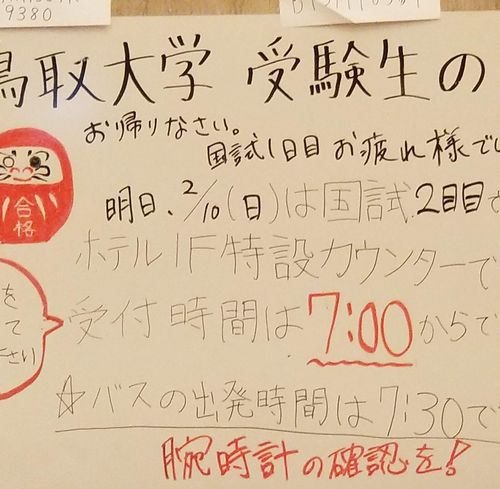 9380
鳥取大学 受験生の
お帰りなさい。
国試1日目 お疲れ様でし
明日、2/10(日)は国試2日目
合格
ホテル1F特設カウンターで
を
受付時間は7:00からで
て
さい
☆バスの出発時間は7:30で
腕時計の確認を!